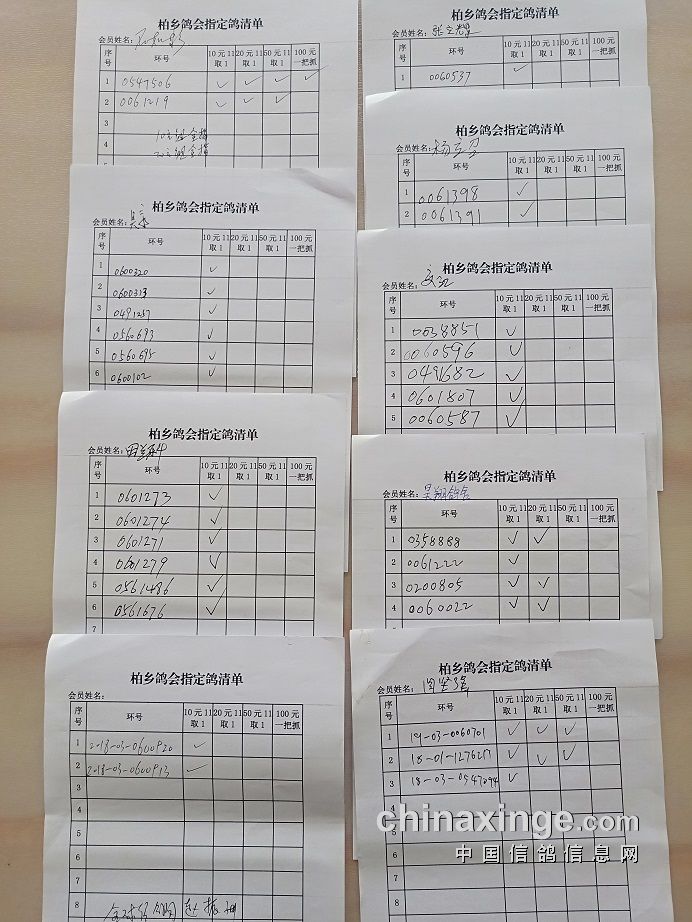 柏乡鸽会指定鸽清单
会员姓名:
序号 环号 10元11取1 20元11取1 50元11取1 100元一把抓
1 0547506 ✓ ✓ ✓ ✓
2 0061219 ✓ ✓ ✓
3
4
柏乡鸽会指定鸽清单
会员姓名:
序号 环号 10元11取1 20元11取1 50元11取1 100元一把抓
1 0600320 ✓
2 0600313 ✓
3 0491257 ✓
4 0560693 ✓
5 0560695 ✓
6 0600102 ✓
柏乡鸽会指定鸽清单
会员姓名:
序号 环号 10元11取1 20元11取1 50元11取1 100元一把抓
1 0601273 ✓
2 0601274 ✓
3 0601271 ✓
4 0601279 ✓
5 0561486 ✓
6 0561676 ✓
7
柏乡鸽会指定鸽清单
会员姓名:
序号 环号 10元11取1 20元11取1 50元11取1 100元一把抓
1 2018-03-0600920 ✓
2 2018-03-0600913 ✓
3
4
5
6
7
8
柏乡鸽会指定鸽清单
会员姓名:张立耀
序号 环号 10元11取1 20元11取1 50元11取1 100元一把抓
1 0060537 ✓
柏乡鸽会指定鸽清单
会员姓名:
序号 环号 10元11取1 20元11取1 50元11取1 100元一把抓
1 0061398 ✓
2 0061391 ✓
柏乡鸽会指定鸽清单
会员姓名:
序号 环号 10元11取1 20元11取1 50元11取1 100元一把抓
1 0038851 ✓
2 0060596 ✓
3 0491682 ✓
4 0601807 ✓
5 0060587 ✓
柏乡鸽会指定鸽清单
会员姓名:昊翔鸽舍
序号 环号 10元11取1 20元11取1 50元11取1 100元一把抓
1 0358888 ✓ ✓
2 0061222 ✓
3 0200805 ✓ ✓
4 0060022 ✓ ✓
柏乡鸽会指定鸽清单
会员姓名:
序号 环号 10元11取1 20元11取1 50元11取1 100元一把抓
1 19-03-0060701 ✓ ✓ ✓
2 18-01-1276217 ✓ ✓ ✓
3 18-03-0547294 ✓
4
5
6
7
8
chinaxinge.com
中国信鸽信息网